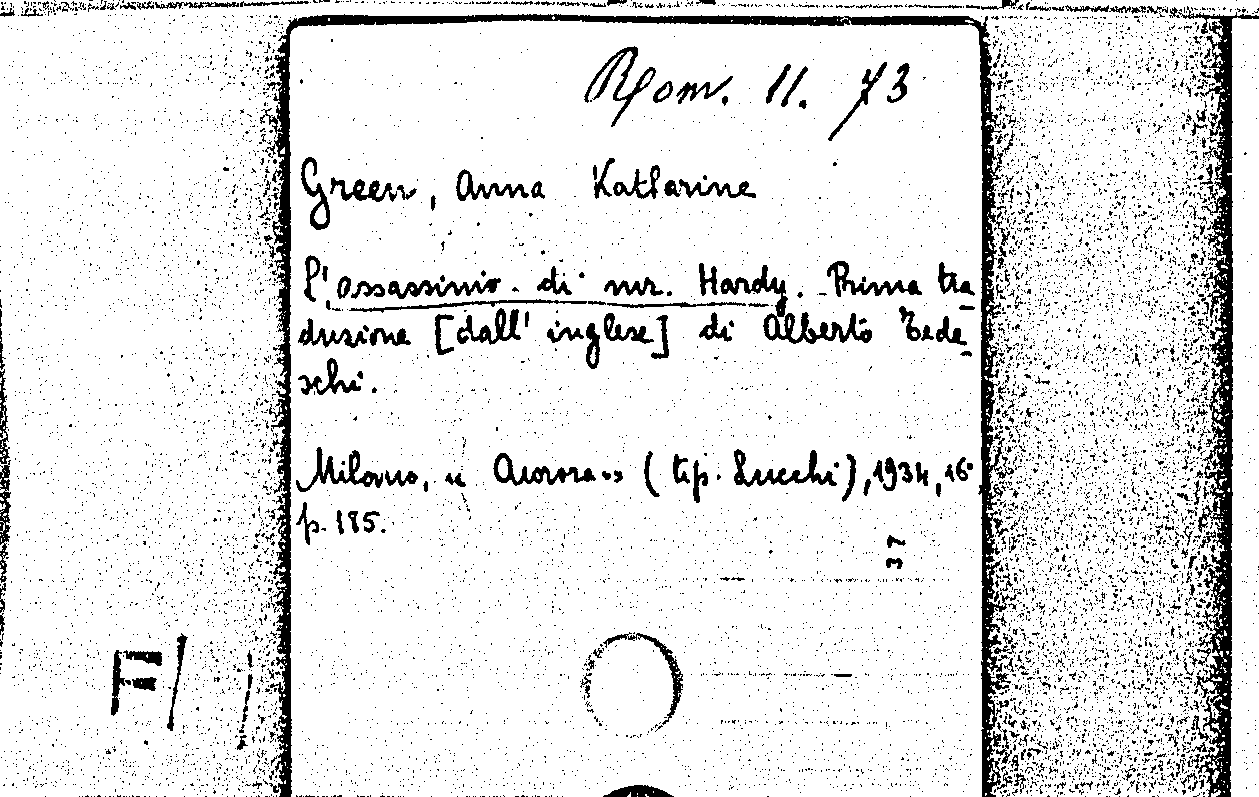 Rom. 11. 73
Green, Anna Katharine
L'assassinio di mr. Hardy. Prima tra-
duzione [dall' inglese] di Alberto Tede-
schi.
Milano, « Aurora » (tip. Lucchi), 1934, 16°,
p. 185.
37
F/